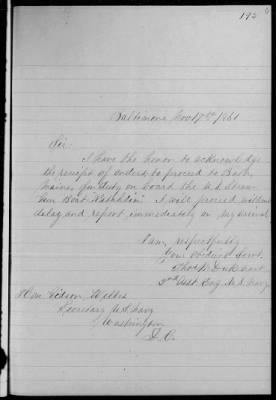 192
Baltimore Nov 17th 1861
Sir:
I have the honor to acknowledge
the receipt of orders to proceed to Bath,
Maine, for duty on board the U.S. Steam
Gun Boat "Katahdin". I will proceed without
delay and report immediately on my arrival
I am, respectfully
Your Obedient Servt.
Thos. H.
3rd Asst. Eng. U.S. Navy
Hon. Gideon Welles
Secretary U.S. Navy
Washington
D.C.